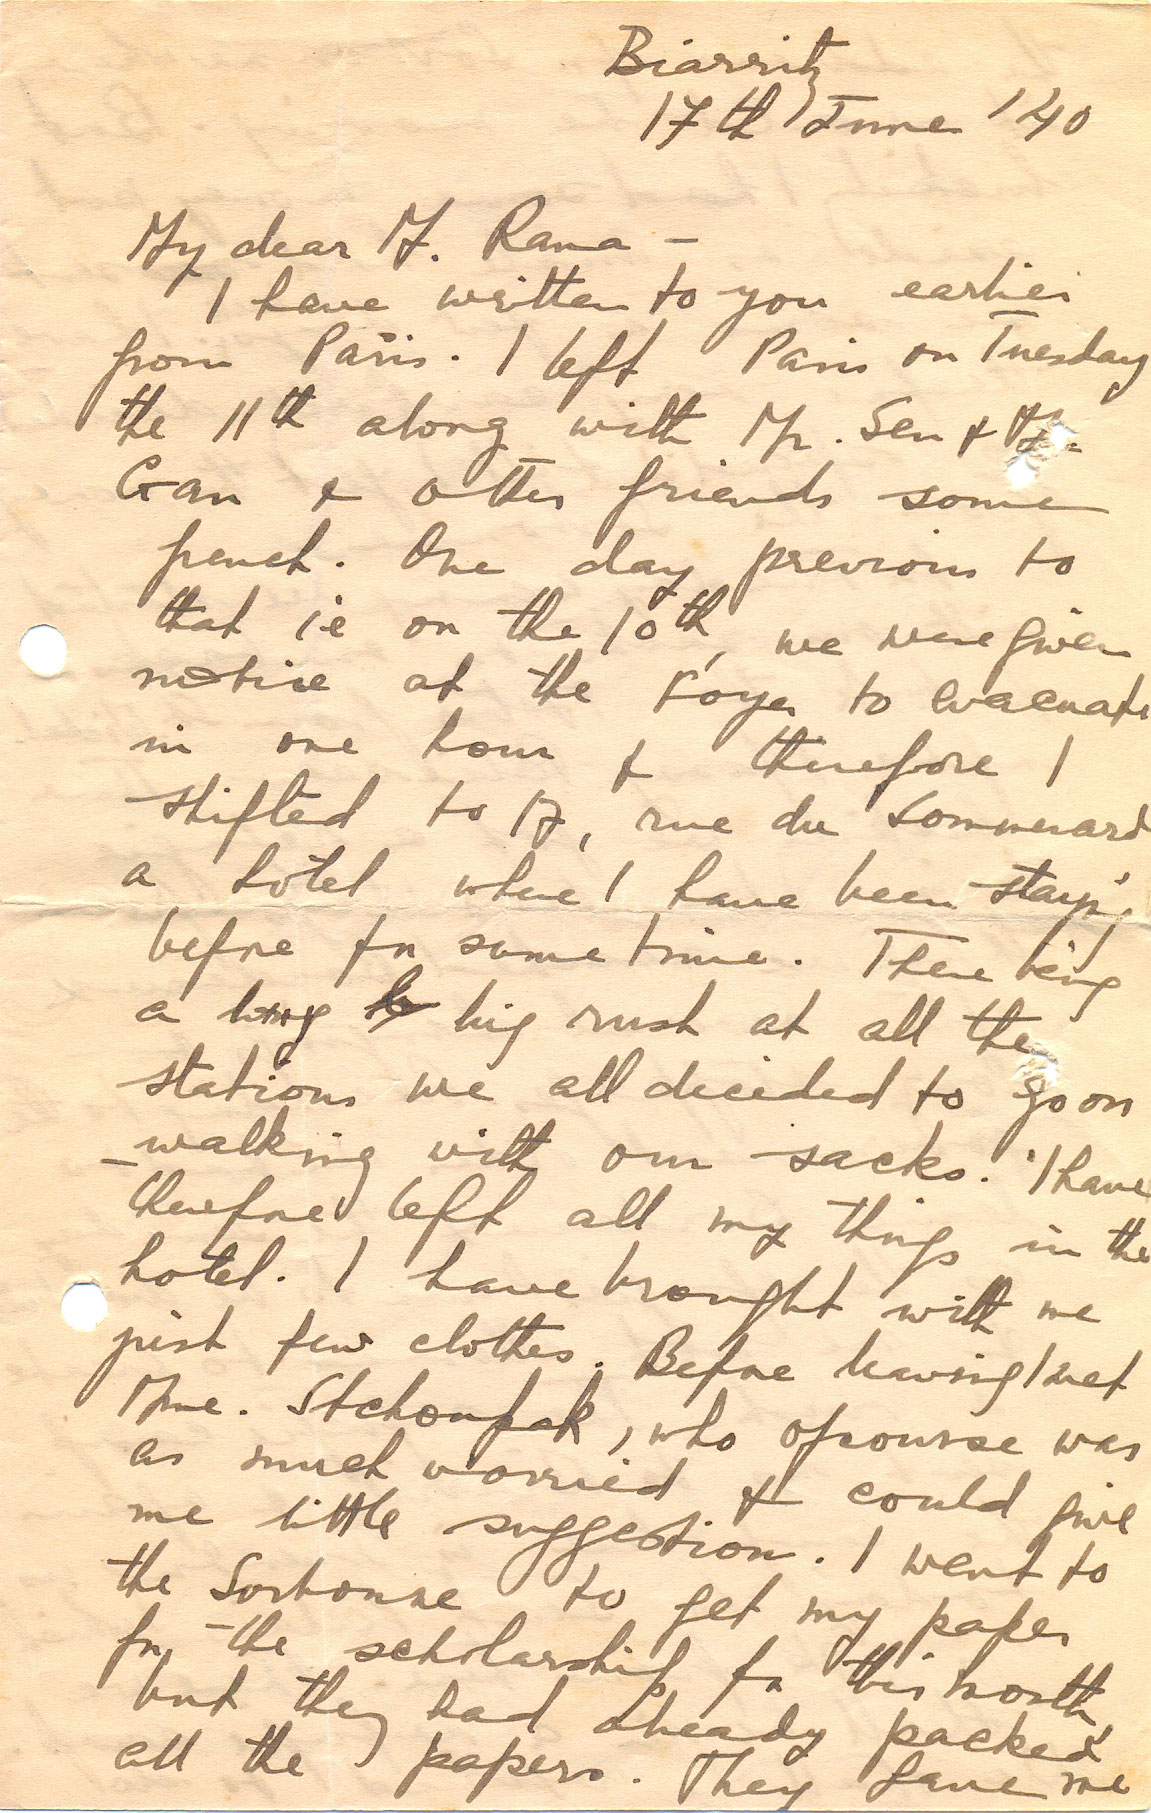 Biarritz
17th June '40
My dear M. Rama -
I have written to you earlier
from Paris. I left Paris on Tuesday
the 11th along with Mr. Sen &
Gan & other friends some
french. One day previous to
that i.e on the 10th, we were given
notice at the Foyer to evacuate
in one hour & therefore I
shifted to 17, rue du Sommerard
a hôtel where I have been staying
before for some time. There being
a big rush at all the
stations we all decided to go on
walking with our sacks. I have
therefore left all my things in the
hotel. I have brought with me
just few clothes. Before leaving I met
Mme. Stchoupak, who ofcourse was
as much worried & could give
me little suggestion. I went to
the Sorbonne to get my paper
for the scholarship for this month,
but they had already packed
all the papers. They gave me